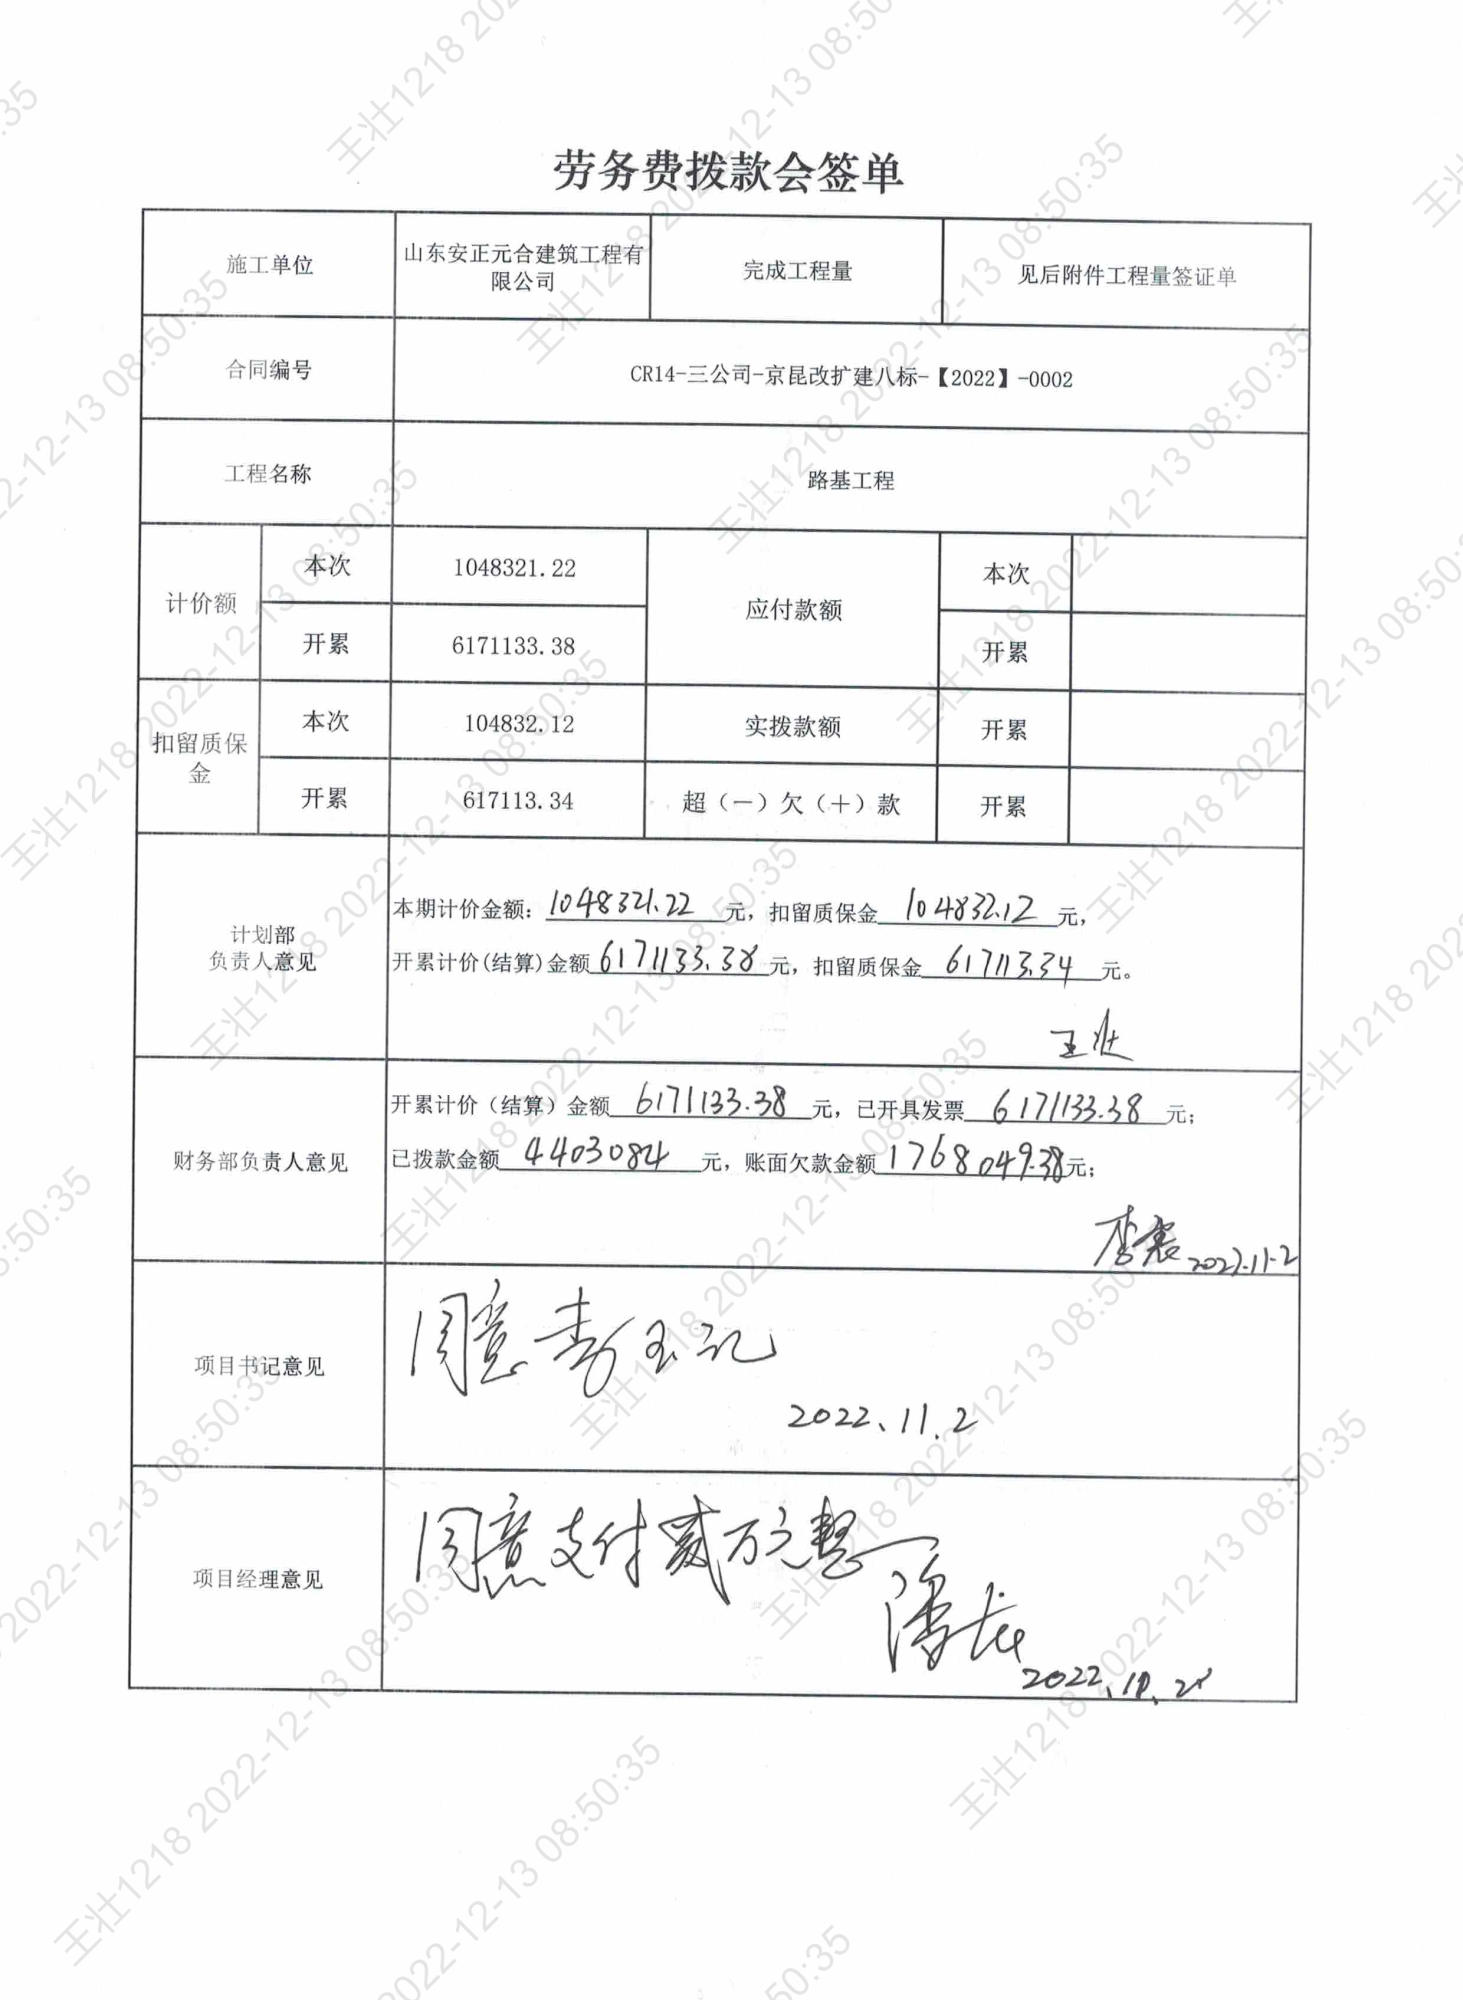 劳务费拨款会签单
施工单位 山东安正元合建筑工程有限公司 完成工程量 见后附件工程量签证单
合同编号 CR14-三公司-京昆改扩建八标-【2022】-0002
工程名称 路基工程
计价额 本次 1048321.22 应付款额 本次
开累 6171133.38 开累
扣留质保金 本次 104832.12 实拨款额 开累
开累 617113.34 超（—）欠（+）款 开累
计划部
负责人意见
本期计价金额：1048321.22元，扣留质保金 104832.12 元，
开累计价(结算)金额 6171133.38 元，扣留质保金 617113.34 元。
王壮
财务部负责人意见
开累计价（结算）金额 6171133.38 元，已开具发票 6171133.38 元；
已拨款金额 4403084 元，账面欠款金额 1768049.38元；
2022.11.2
项目书记意见
同意 李玉记
2022.11.2
项目经理意见
同意支付贰万元整
潘龙
王壮1218 2022-12-13 08:50:35